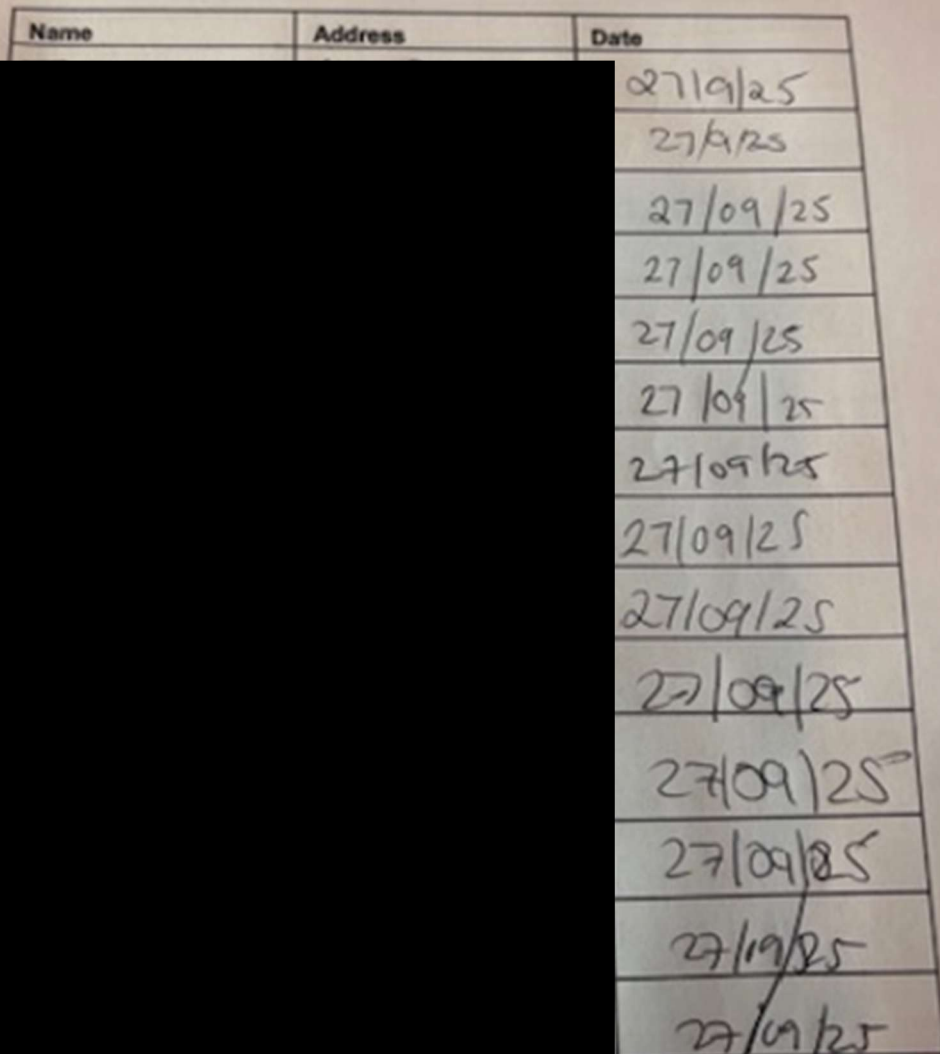 Name Address Date
27/9/25
27/9/25
27/09/25
27/09/25
27/09/25
27/09/25
27/09/25
27/09/25
27/09/25
27/09/25
27/09/25
27/09/25
27/19/25
27/09/25